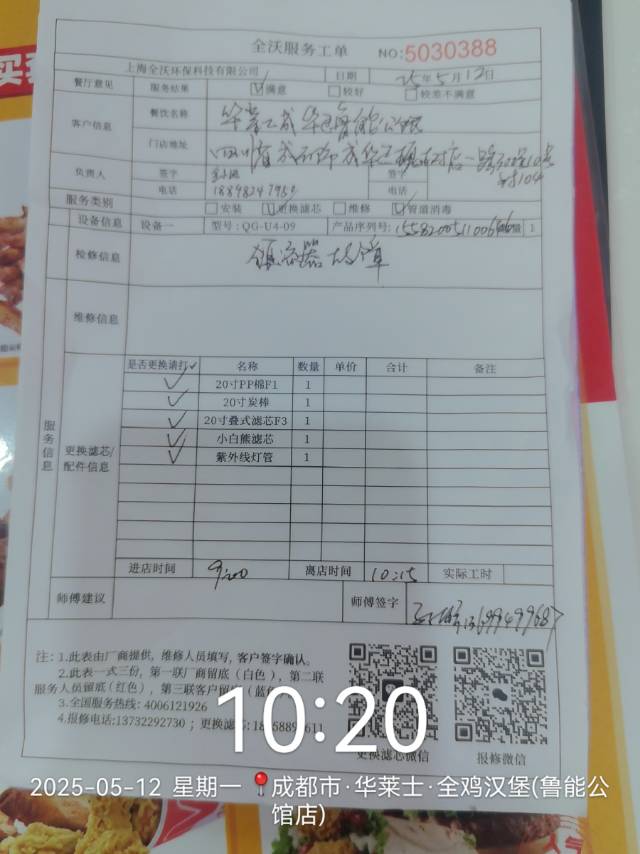 买
全沃服务工单 NO:5030388
上海全沃环保科技有限公司 日期 25年5月12日
餐厅意见 服务结果 ☑满意 □较好 □较差不满意
客户信息 餐饮名称 华莱士成华区鲁能公馆
门店地址 四川省成都市成华区
负责人 签字 签字
电话 电话
服务类别 □安装 ☑更换滤芯 □维修 ☑管道消毒
设备信息 设备一 型号:QG-U4-09 产品序列号: 1
检修信息 镇流器故障
维修信息
服务信息
更换滤芯/配件信息
是否更换请打✓ 名称 数量 单价 合计 备注
✓ 20寸PP棉F1 1
✓ 20寸炭棒 1
✓ 20寸叠式滤芯F3 1
✓ 小白熊滤芯 1
✓ 紫外线灯管 1
进店时间 9:00 离店时间 10:15 实际工时
师傅建议 师傅签字
注:1.此表由厂商提供,维修人员填写,客户签字确认。
2.此表一式三份,第一联厂商留底(白色),第二联
服务人员留底(红色),第三联客户留
3.全国服务热线:4006121926
4.报修电话:13732292730;更换滤芯:
更换滤芯微信 报修微信
10:20
2025-05-12 星期一 成都市·华莱士·全鸡汉堡(鲁能公
馆店)